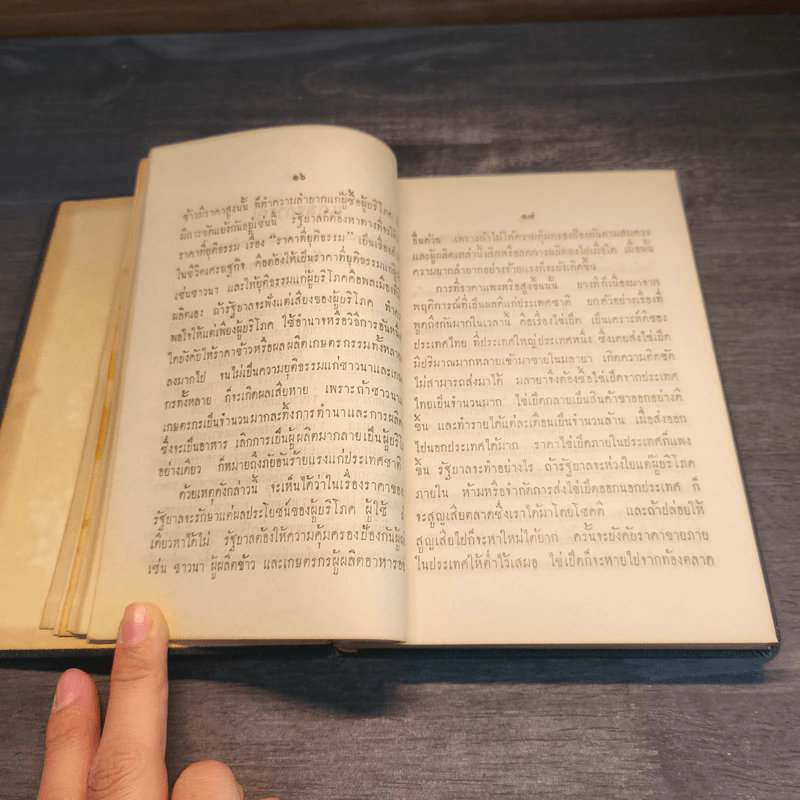 ๑๖
ข้าวมีราคาสูงนั้น ก็ทำความลำบากแก่ผู้ซื้อผู้บริโภค
มีการขัดแย้งกันอยู่เช่นนี้ รัฐบาลก็ต้องหาทางที่จะให้
ราคาที่ยุติธรรม เรื่อง “ราคาที่ยุติธรรม” เป็นเรื่อง
ในชีวิตเศรษฐกิจ คือต้องให้เป็นราคาที่ยุติธรรมแก่ผู้
เช่นชาวนา และให้ยุติธรรมแก่ผู้บริโภคคือพลเมือง
ผลิตเอง ถ้ารัฐบาลจะฟังแต่เสียงของผู้บริโภค
พอใจให้แต่เพียงผู้บริโภค ใช้อำนาจหรือวิธีการอัน
ใดบังคับให้ราคาข้าวหรือผลผลิตเกษตรกรรมทั้งหลาย
ลงมากไป จนไม่เป็นความยุติธรรมแก่ชาวนาและ
กรทั้งหลาย ก็จะเกิดผลเสียหาย เพราะถ้าชาวนา
เกษตรกรเป็นจำนวนมากละทิ้งการทำนาและการผลิต
ซึ่งจะเป็นอาหาร เลิกการเป็นผู้ผลิตมากลายเป็นผู้บริโภ
อย่างเดียว ก็หมายถึงภัยอันร้ายแรงแก่ประเทศชาติ
ด้วยเหตุดังกล่าวนี้ จะเห็นได้ว่าในเรื่องราคาของ
รัฐบาลจะรักษาแต่ผลประโยชน์ของผู้บริโภค ผู้ใช้
เดียวหาได้ไม่ รัฐบาลต้องให้ความคุ้มครองป้องกันผู้ผ
เช่น ชาวนา ผู้ผลิตข้าว และเกษตรกรผู้ผลิตอาหาร
๑๗
อื่นด้วย เพราะถ้าไม่ให้ความคุ้มครองป้องกันตามสมควร
และผู้ผลิตเหล่านั้นเลิกหรือลดการผลิตลงไปเมื่อใด เมื่อนั้น
ความยากลำบากอย่างร้ายแรงก็จะบังเกิดขึ้น
การที่ราคาแพงหรือสูงขึ้นนั้น บางทีก็เนื่องมาจาก
พฤติการณ์ที่เป็นผลดีแก่ประเทศชาติ ยกตัวอย่างเรื่องที่
พูดถึงกันมากในเวลานี้ คือเรื่องไข่เป็ด เป็นเคราะห์ดีของ
ประเทศไทย ที่ประเทศใหญ่ประเทศหนึ่ง ซึ่งเคยส่งไข่เป็ด
มีปริมาณมากหลายเข้ามาขายในมลายา เกิดความติดขัด
ไม่สามารถส่งมาได้ มลายาจึงต้องซื้อไข่เป็ดจากประเทศ
ไทยเป็นจำนวนมาก ไข่เป็ดกลายเป็นสินค้าขาออกอย่างดี
ขึ้น และทำรายได้แต่ละเดือนเป็นจำนวนล้าน เมื่อส่งออก
ไปนอกประเทศได้มาก ราคาไข่เป็ดภายในประเทศก็แพง
ขึ้น รัฐบาลจะทำอย่างไร ถ้ารัฐบาลจะห่วงใยแต่ผู้บริโภค
ภายใน ห้ามหรือจำกัดการส่งไข่เป็ดออกนอกประเทศ ก็
จะสูญเสียตลาดซึ่งเราได้มาโดยโชคดี และถ้าปล่อยให้
สูญเสียไปก็จะหาใหม่ได้ยาก ครั้นจะบังคับราคาขายภาย
ในประเทศให้ต่ำไว้เสมอ ไข่เป็ดก็จะหายไปจากท้องตลาด